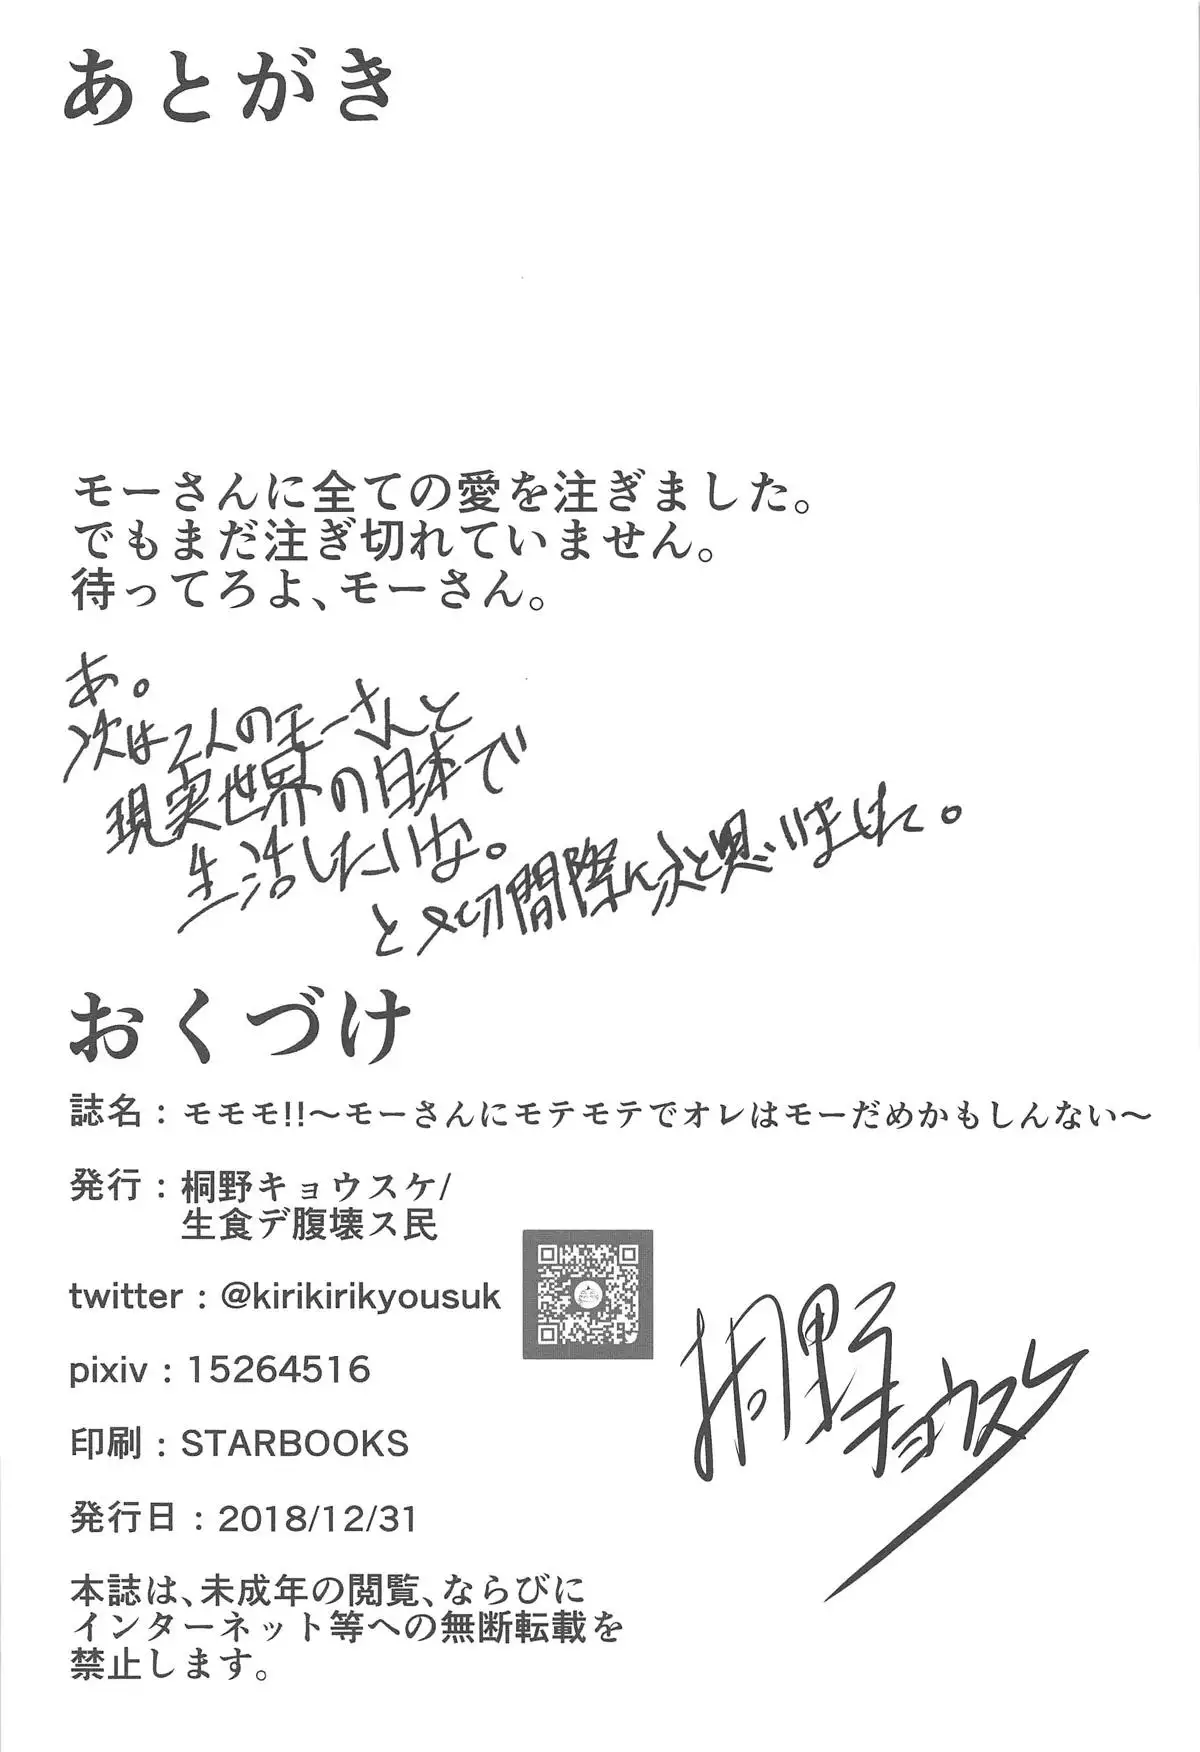 あとがき
モーさんに全ての愛を注ぎました。
でもまだ注ぎ切れていません。
待ってろよ、モーさん。
あ。
次は2人のモーさんと
現実世界の日本で
生活したいな。
と〆切間際にふと思いました。
おくづけ
誌名：モモモ!!～モーさんにモテモテでオレはモーだめかもしんない～
発行：桐野キョウスケ/
生食デ腹壊ス民
twitter：@kirikirikyousuk
pixiv：15264516
桐野キョウスケ
印刷：STARBOOKS
発行日：2018/12/31
本誌は、未成年の閲覧、ならびに
インターネット等への無断転載を
禁止します。